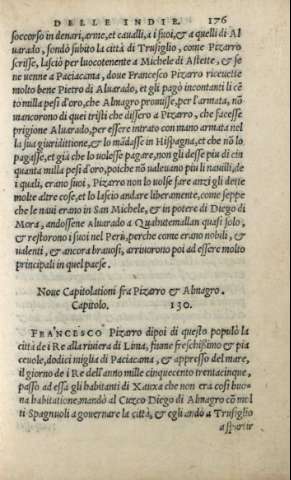 DELLE INDIE. 176
soccorso in denari, arme, et cavalli, a i suoi, & a quelli di Al
uarado, fondò subito la città di Trusiglio, come Pizarro
scrisse, lasciò per luocotenente a Michele di Astette, & se
ne venne a Paciacama, doue Francesco Pizarro riceuette
molto bene Pietro di Aluarado, et gli pagò incontanti li cẽ
tò milla pesi d'oro, che Almagro promisse, per l'armata, nõ
mancorono di quei tristi che dissero a Pizarro, che facesse
prigione Aluarado, per essere intrato con mano armata nel
la sua giuriditione, & lo mãdasse in Hispagna, et che nõ lo
pagasse, et gia che lo uolesse pagare, non gli desse piu di cin
quanta milla pesi d'oro, poiche nõ valeuano piu li nauili, de
i quali, erano suoi, Pizarro non lo uolse fare anzi gli dette
molte altre cose, et lo lasciò andare liberamente, come seppe
che le naui erano in San Michele, & in potere di Diego di
Mora, andossene Aluarado a Quahutemallan quasi solo,
& restorono i suoi nel Perù, perche come erano nobili, &
valenti, & ancora brauosi, arriuorono poi ad essere molto
principali in quel paese.
Noue Capitolationi fra Pizarro & Almagro.
Capitolo. 130.
FRANCESCO Pizarro dipoi di questo popolò la
città de i Re alla riuiera di Lima, fiume freschissimo & pia
ceuole, dodici miglia di Paciacama, & appresso del mare,
il giorno de i Re dell'anno mille cinquecento trentacinque,
passò ad essa gli habitanti di Xauxa che non era così buo=
na habitatione, mandò al Cuzco Diego di Almagro cõ mol
ti Spagnuoli a gouernare la città, & egli andò a Trusiglio
a spartir